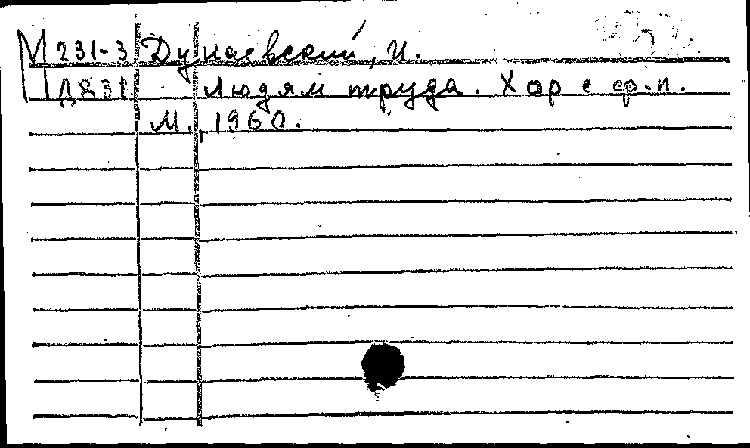 М231-3 Дунаевский, И.
Д831 Людям труда. Хор с ф.п.
М., 1960.